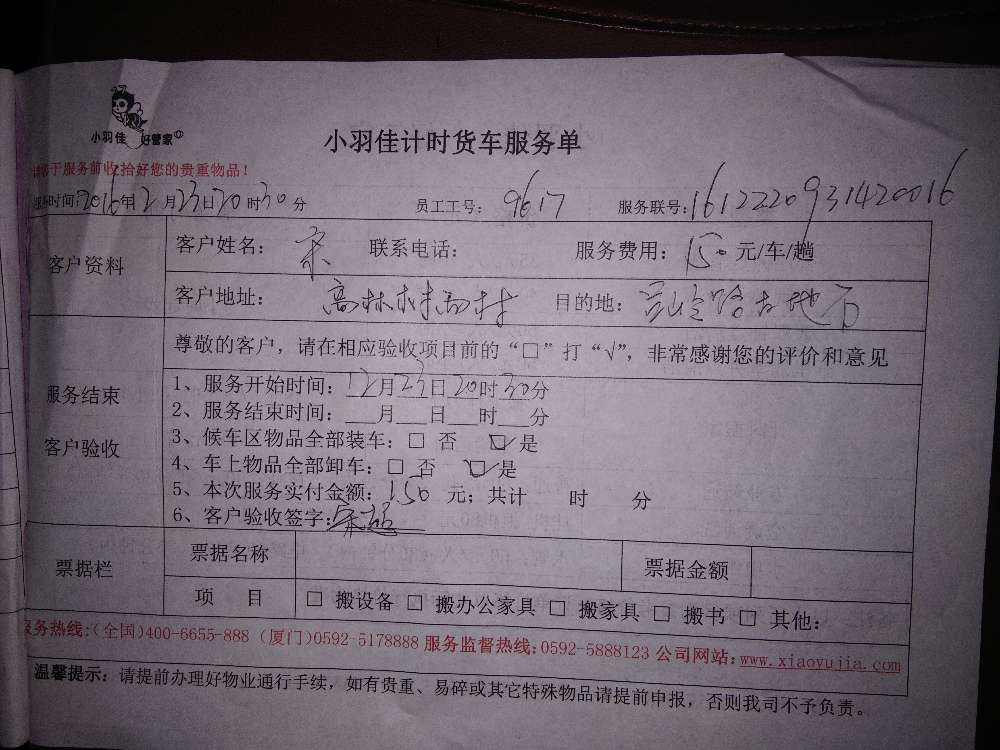 小羽佳 好管家
小羽佳计时货车服务单
于服务前收拾好您的贵重物品！
服务时间:2016年12月23日20时30分 员工工号: 9617 服务联号:1612220931420016
客户资料
客户姓名: 宋 联系电话: 服务费用: 150元/车/趟
客户地址: 高林村 目的地:
尊敬的客户，请在相应验收项目前的“□”打“√”，非常感谢您的评价和意见
服务结束
客户验收
1、服务开始时间: 12月23日20时30分
2、服务结束时间: 月 日 时 分
3、候车区物品全部装车: □ 否 ☑是
4、车上物品全部卸车: □ 否 ☑是
5、本次服务实付金额: 150 元; 共计 时 分
6、客户验收签字:
票据栏
票据名称 票据金额
项 目 □ 搬设备 □ 搬办公家具 □ 搬家具 □ 搬书 □ 其他:
服务热线:(全国)400-6655-888 (厦门)0592-5178888 服务监督热线:0592-5888123 公司网站:www.xiaoyujia.com
温馨提示: 请提前办理好物业通行手续，如有贵重、易碎或其它特殊物品请提前申报，否则我司不予负责。